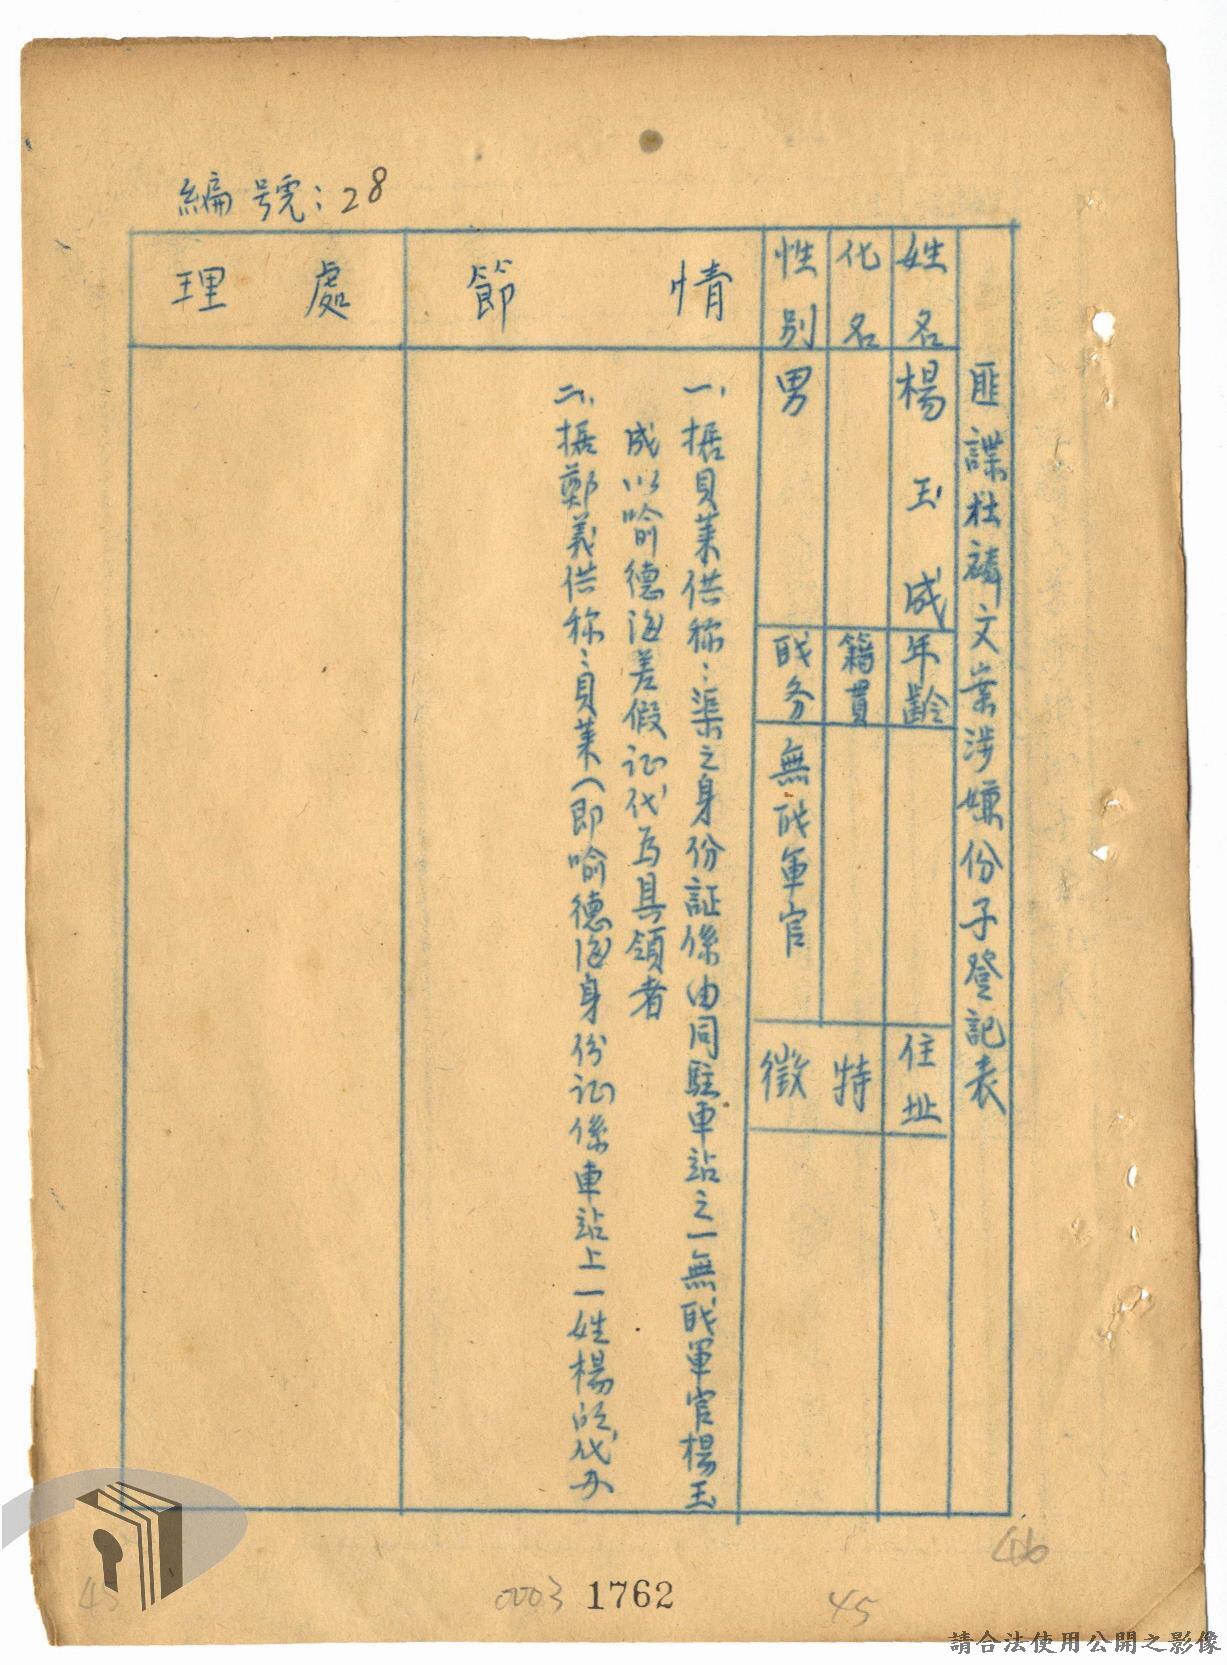 編號：28
匪諜杜麟文案涉嫌份子登記表
姓名 楊玉成 年齡 住址
化名 籍貫 特徵
性別 男 职务 無职軍官
情節
一、据貝萊供称：渠之身份証係由同駐車站之一無职軍官楊玉
成以喻德海差假证代为具領者
二、据鄭義供称：貝萊（即喻德海身份证係車站上一姓楊的代办
處理
0003 1762
45
46
請合法使用公開之影像